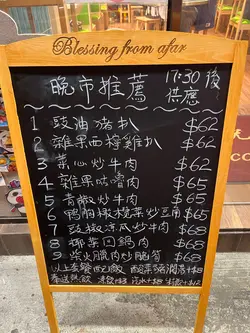 Blessing from afar
晚市推薦 17:30後供應
1 豉油豬扒 $62
2 雜果西檸雞扒 $62
3 菜心炒牛肉 $62
4 雜果咕嚕肉 $65
5 青椒炒牛肉 $65
6 鴨胸橄欖菜炒豆角 $65
7 豉椒涼瓜炒牛肉 $68
8 椰菜回鍋肉 $68
9 柴火腸肉炒脆筍 $68
以上套餐